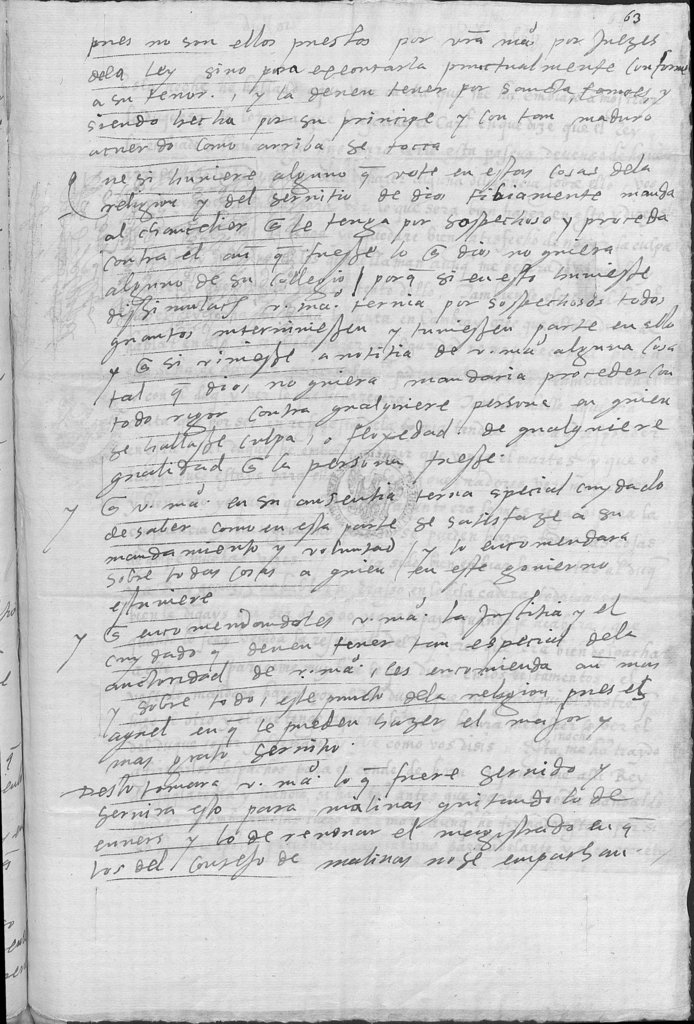 63
pues no son ellos puestos por vrã mag.d por Juezes
dela Ley sino para executarla punctualmente conforme
a su tenor, y la deuen tener por sancta
siendo hecha por su principe y con tan maduro
acuerdo como arriba se tocca
Que si huuiere alguno q̃ vote en estas cosas dela
religion y del seruitio de dios tibiamente manda
al chanceller q̃ le tenga por sospechoso y proceda
contra el aũ q̃ fuesse lo q̃ dios no quiera
alguno de su collegio / porq̃ si en esto huuiesse
dissimulaçõ v. mag.d ternia por sospechosos todos
quantos interuiniessen y tuuiessen parte en ello
y q̃ si viniesse a notitia de v. mag.d alguna cosa
tal q̃ dios no quiera mandaria proceder con
todo rigor contra qualquiere persona en quien
se hallasse culpa, o floxedad de qualquiere
qualidad q̃ la persona fuesse.
y q̃ v. mag.d en su ausentia terna special cuydado
de saber como en esta parte se satisfaze a su
mandamiento y voluntad, y lo encomendara
sobre todas cosas a quien en este gouierno
estuuiere
y q̃ encomendandoles v. mag.d la Justitia y el
cuydado q̃ deuen tener tan especial dela
auctoridad de v. mag.d, les encomienda aũ mas
y sobre todo, este puncto dela religion pues es
aquel en q̃ le pueden hazer el major y
mas grato seruitio.
Desto tomara v. mag.d lo q̃ fuere seruido y
seruira esto para malinas quitando lo de
y lo de renouar el magistrado en q̃
los del Consejo de malinas no se empachan.